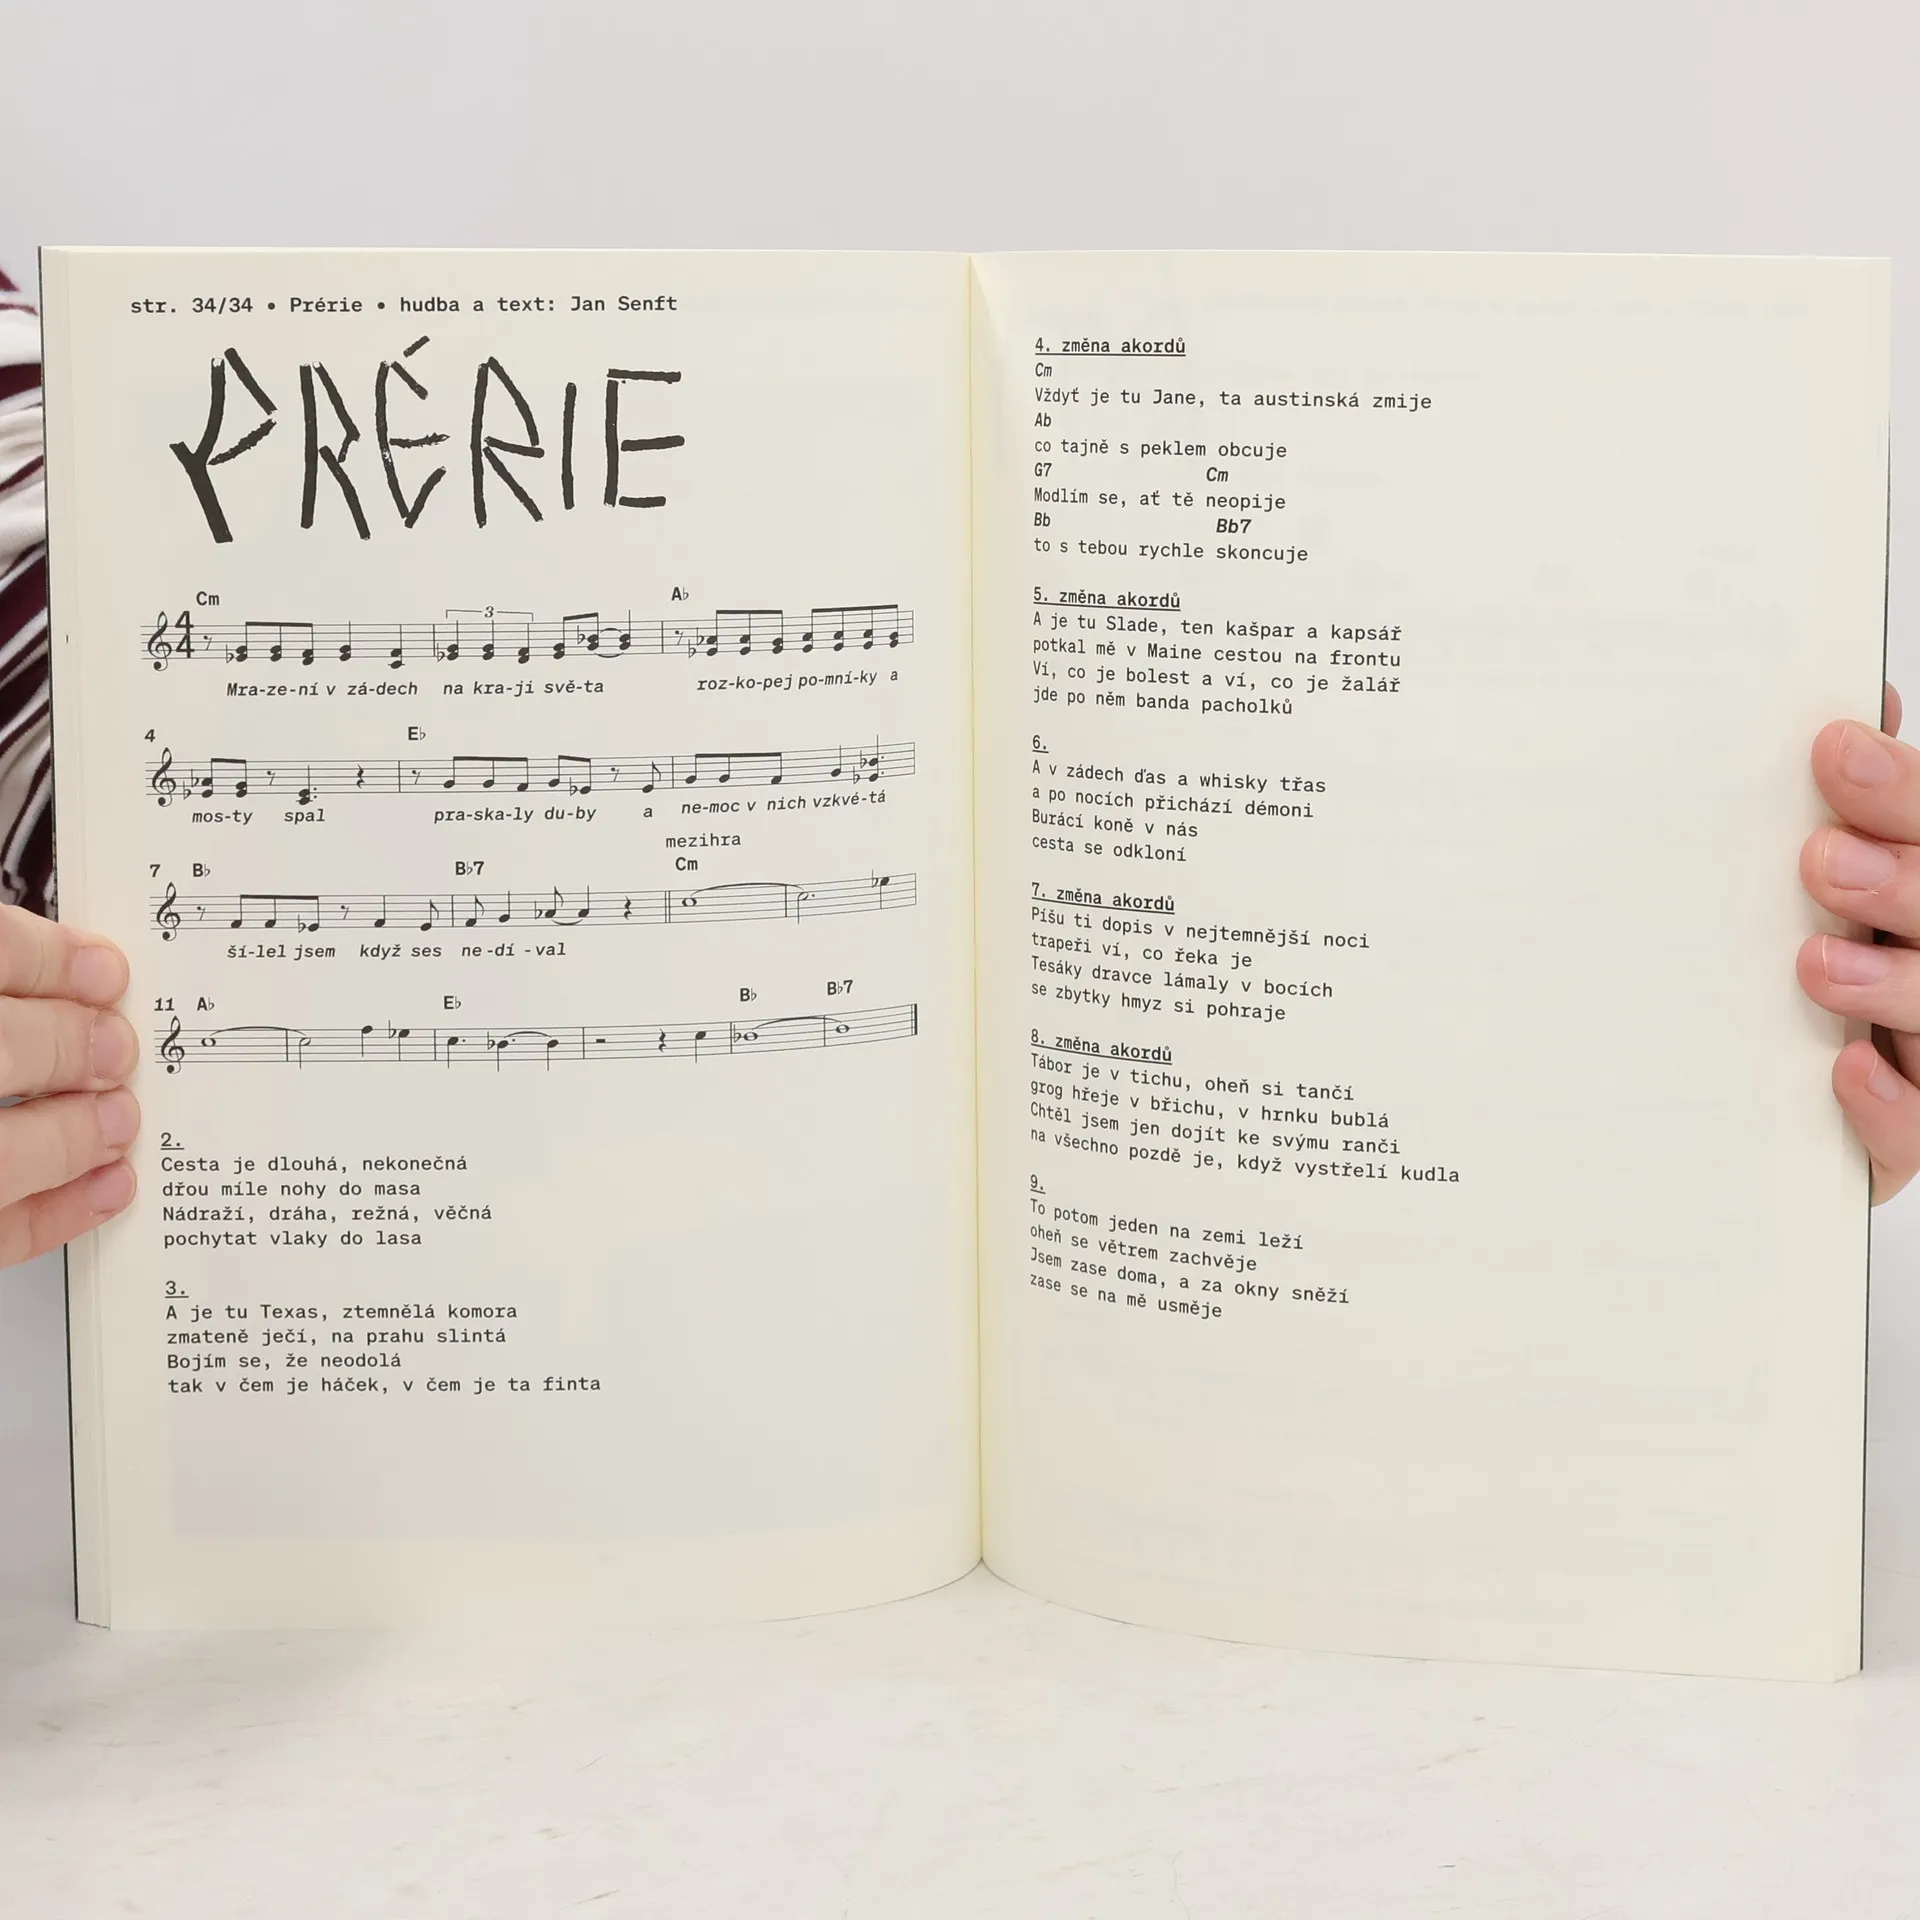 str. 34/34 • Prérie • hudba a text: Jan Senft
PRÉRIE
Cm A♭
4 4
3
Mra-ze-ní v zá-dech na kra-ji svě-ta roz-ko-pej po-mní-ky a
4 E♭
mos-ty spal pra-ska-ly du-by a ne-moc v nich vzkvé-tá
mezihra
7 B♭ B♭7 Cm
ší-lel jsem když ses ne-dí-val
11 A♭ E♭ B♭ B♭7
2.
Cesta je dlouhá, nekonečná
dřou míle nohy do masa
Nádraží, dráha, režná, věčná
pochytat vlaky do lasa
3.
A je tu Texas, ztemnělá komora
zmateně ječí, na prahu slintá
Bojím se, že neodolá
tak v čem je háček, v čem je ta finta
4. změna akordů
Cm
Vždyť je tu Jane, ta austinská zmije
Ab
co tajně s peklem obcuje
G7 Cm
Modlím se, ať tě neopije
Bb Bb7
to s tebou rychle skoncuje
5. změna akordů
A je tu Slade, ten kašpar a kapsář
potkal mě v Maine cestou na frontu
Ví, co je bolest a ví, co je žalář
jde po něm banda pacholků
6.
A v zádech ďas a whisky třas
a po nocích přichází démoni
Burácí koně v nás
cesta se odkloní
7. změna akordů
Píšu ti dopis v nejtemnější noci
trapeři ví, co řeka je
Tesáky dravce lámaly v bocích
se zbytky hmyz si pohraje
8. změna akordů
Tábor je v tichu, oheň si tančí
grog hřeje v břichu, v hrnku bublá
Chtěl jsem jen dojít ke svýmu ranči
na všechno pozdě je, když vystřelí kudla
9.
To potom jeden na zemi leží
oheň se větrem zachvěje
Jsem zase doma, a za okny sněží
zase se na mě usměje